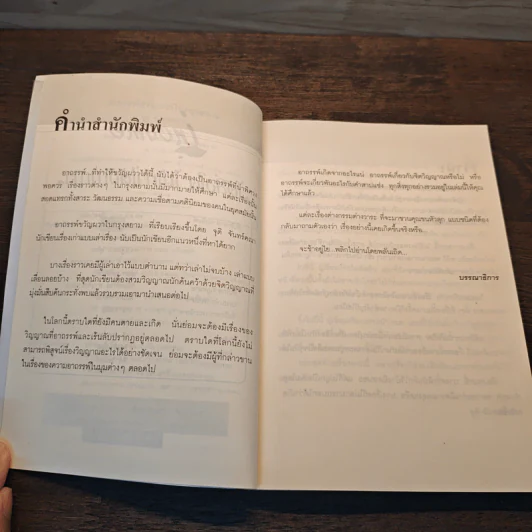 คำนำสำนักพิมพ์
อาถรรพ์...ที่ทำให้ขวัญผวาได้นี้ นับได้ว่าต้องเป็นอาถรรพ์ที่น่าพิศวง
พอควร เรื่องราวต่างๆ ในกรุงสยามนั้นมีมากมายให้ศึกษา แต่ละเรื่องนั้น
สอดแทรกทั้งสาระ วัฒนธรรม และความเชื่อตามคตินิยมของคนในยุคสมัยนั้น
อาถรรพ์ขวัญผวาในกรุงสยาม ที่เรียบเรียงขึ้นโดย จุติ จันทร์คณา
นักเขียนเรื่องเก่าแบบเล่าเรื่อง นับเป็นนักเขียนอีกแนวหนึ่งที่หาได้ยาก
บางเรื่องราวเคยมีผู้เล่าเอาไว้แบบตำนาน แต่ทว่าเล่าไม่จบบ้าง เล่าแบบ
เลื่อนลอยบ้าง ที่สุดนักเขียนต้องสวมวิญญาณนักค้นคว้าด้วยจิตวิญญาณที่
มุ่งมั่นสืบค้นกระทั่งพบแล้วรวบรวมเอามานำเสนอต่อไป
ในโลกนี้ตราบใดที่ยังมีคนตายและเกิด นั่นย่อมจะต้องมีเรื่องของ
วิญญาณที่อาถรรพ์และเร้นลับปรากฏอยู่ตลอดไป ตราบใดที่โลกนี้ยังไม่
สามารถพิสูจน์เรื่องวิญญาณอะไรได้อย่างชัดเจน ย่อมจะต้องมีผู้ที่กล่าวขาน
ในเรื่องของความอาถรรพ์ในมุมต่างๆ ตลอดไป
อาถรรพ์เกิดจากอะไรแน่ อาถรรพ์เกี่ยวกับจิตวิญญาณหรือไม่ หรือ
อาถรรพ์จะเกี่ยวพันอะไรกับคำสาปแช่ง ทุกสิ่งทุกอย่างรวมอยู่ในเล่มนี้ให้คุณ
ได้ศึกษาแล้ว
แต่ละเรื่องต่างกรรมต่างวาระ ที่จะมาชวนคุณขนหัวลุก แบบชนิดที่ต้อง
กลับมาถามตัวเองว่า เรื่องอย่างนี้เคยเกิดขึ้นจริงหรือ...
จะช้าอยู่ไย...พลิกไปอ่านโดยพลันเถิด...
บรรณาธิการ